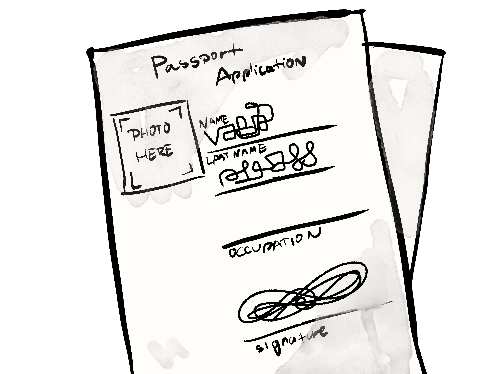 Passport
Application
PHOTO
HERE
NAME
LAST NAME
OCCUPATION
signature